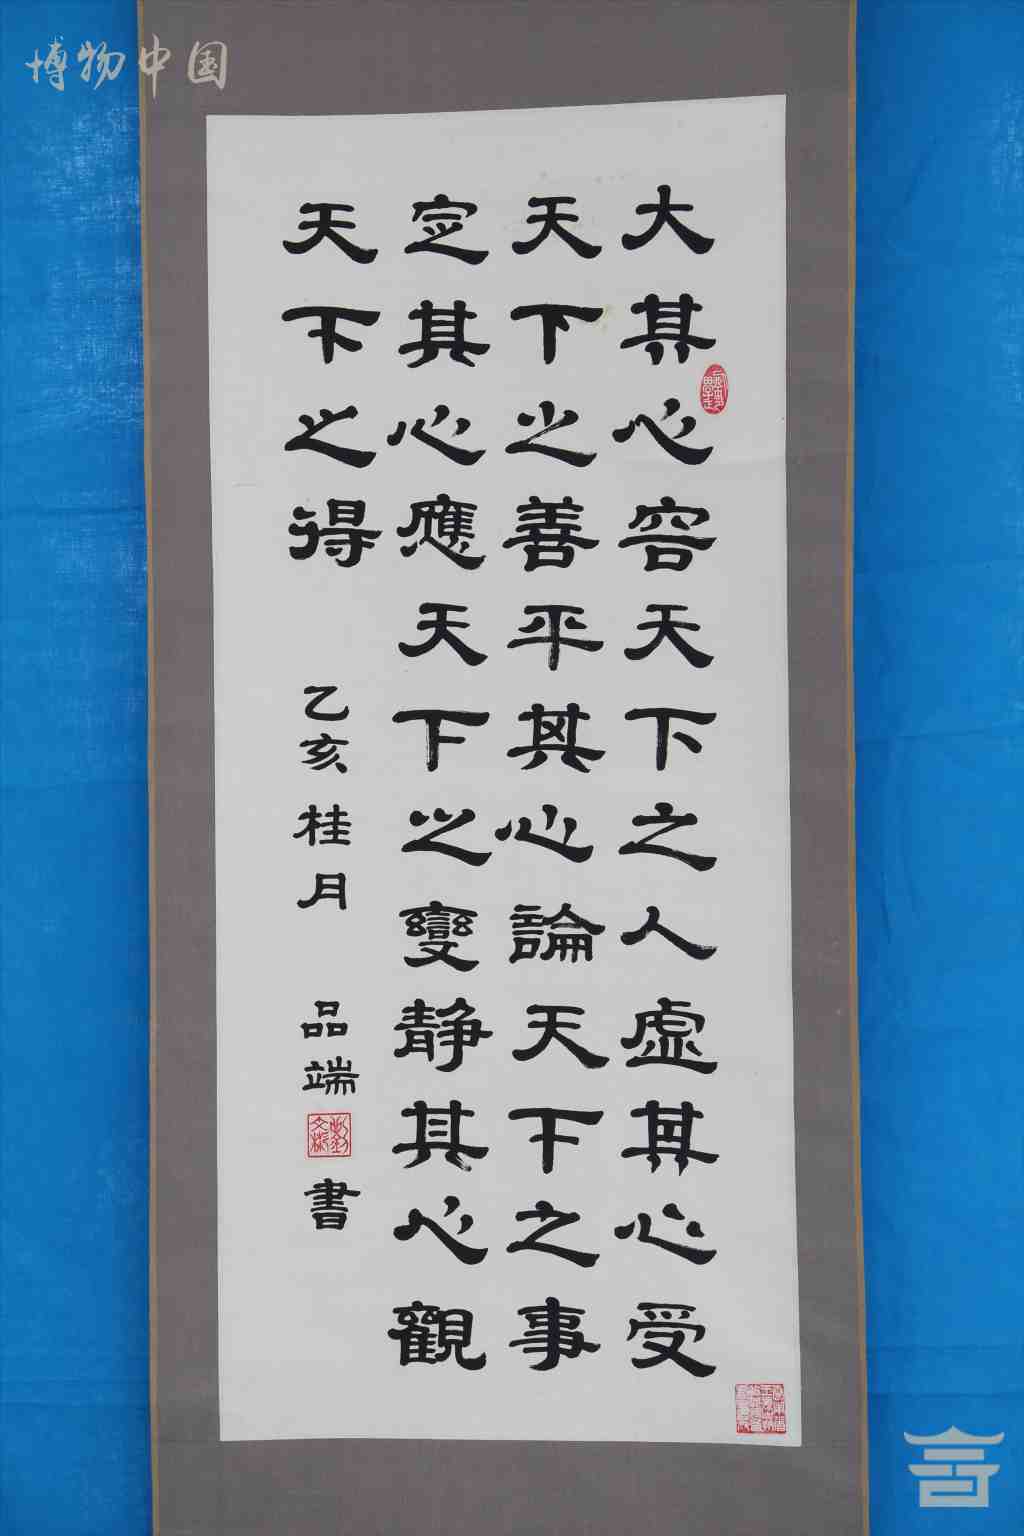 大其心容天下之人虛其心受
天下之善平其心論天下之事
定其心應天下之變静其心觀
天下之得
乙亥桂月 品端 書
博物中国